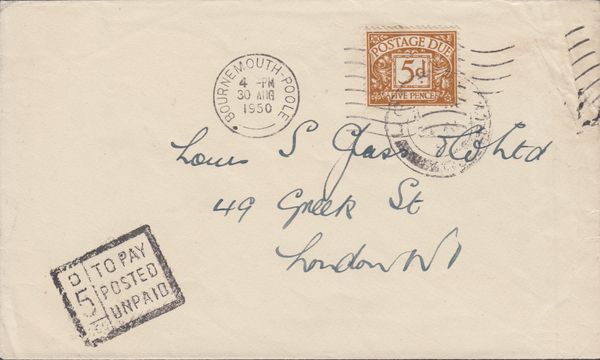 BOURNEMOUTH-POOLE
4 -PM
30 AUG
1950
POSTAGE DUE
5d
FIVE PENCE
Louis S Glass & Co Ltd
49 Greek St
London W1
D
5
TO PAY
POSTED
UNPAID